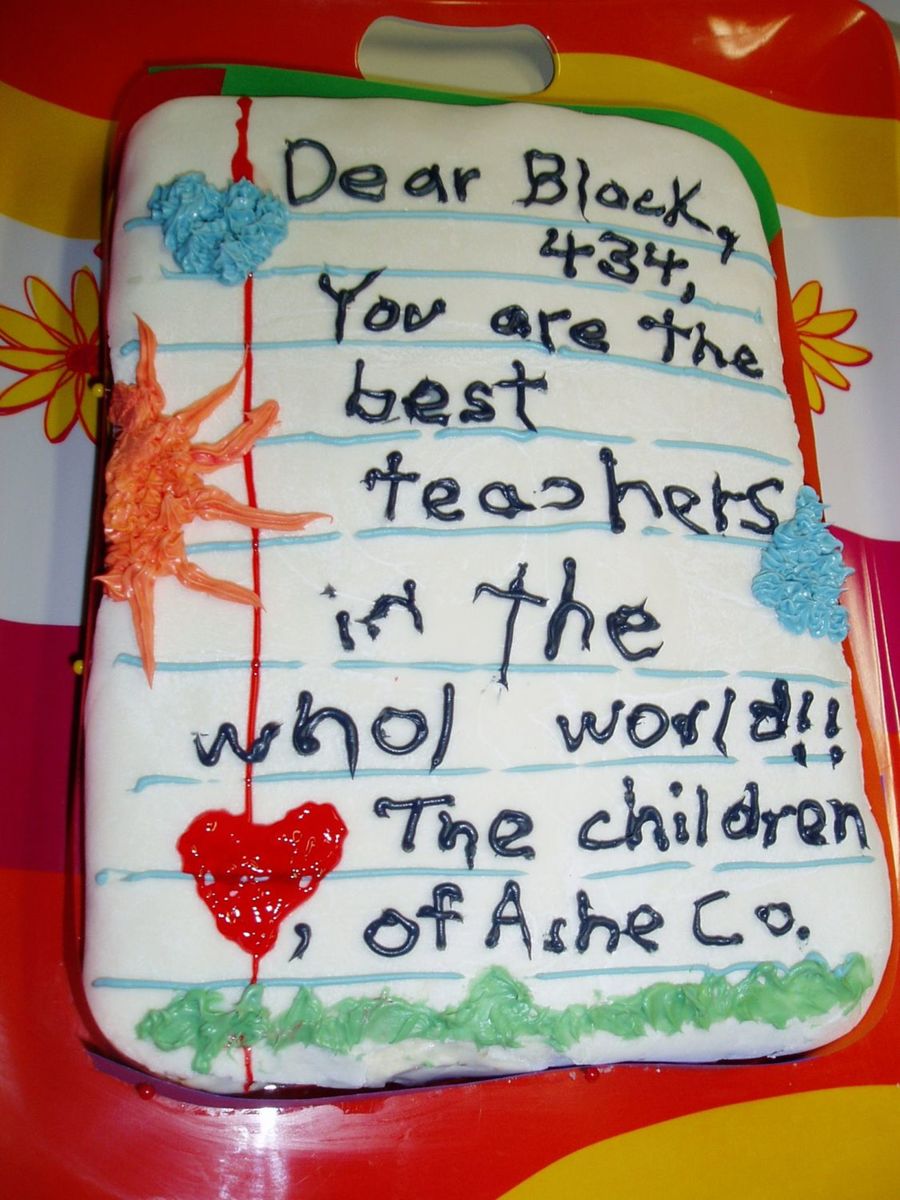 Dear Block,
434,
You are the
best
teachers
in the
whol world!!
The children
, of Ashe Co.